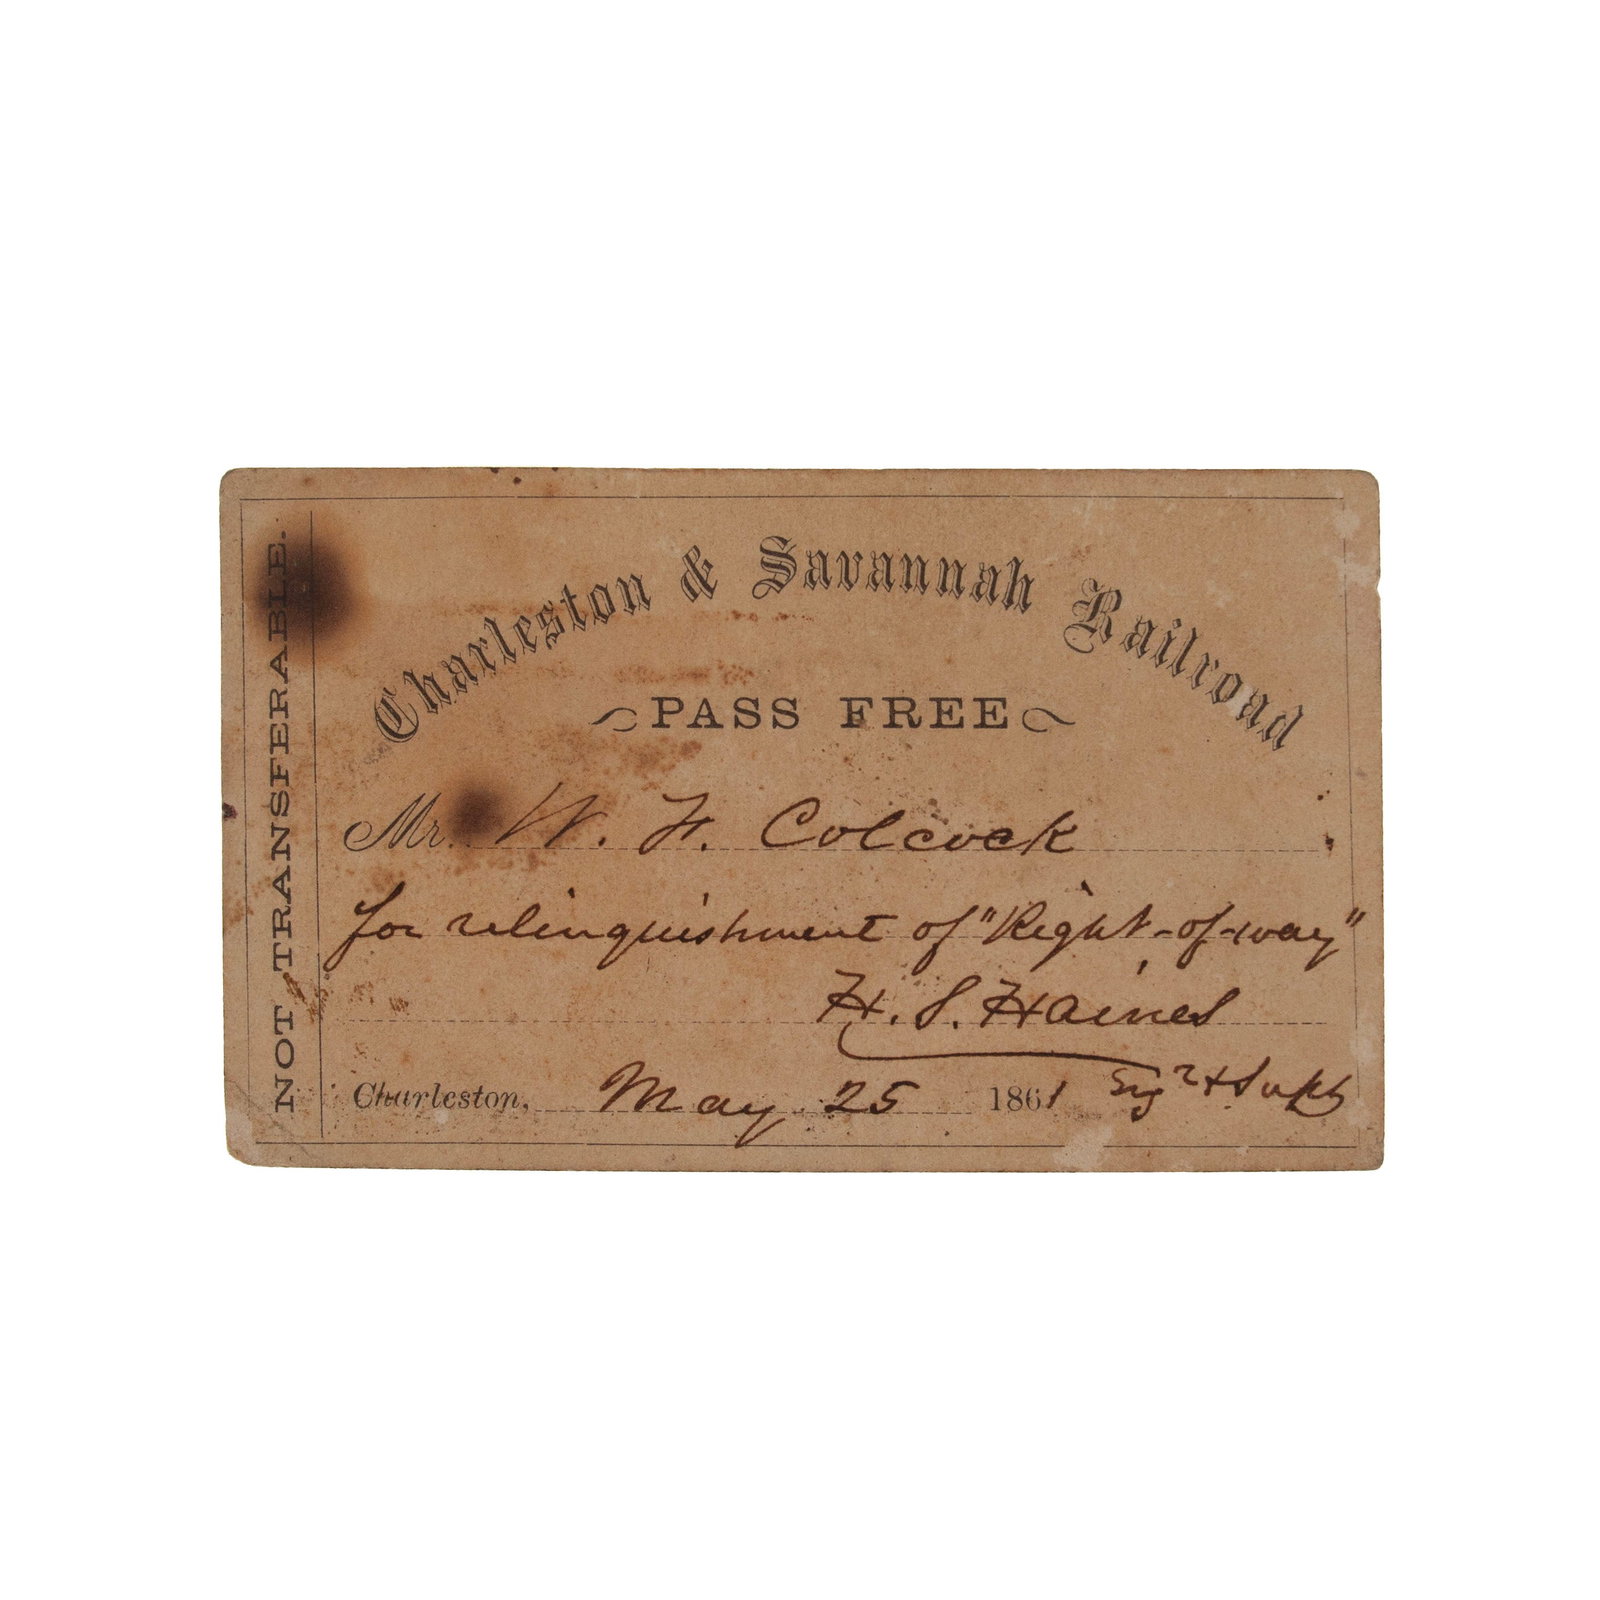 NOT TRANSFERABLE.
Charleston & Savannah Railroad
PASS FREE
Mr. W. F. Colcock
for relinquishment of "Right-of-way"
H. S. Haines
Engr & Supt
Charleston, May 25 1861